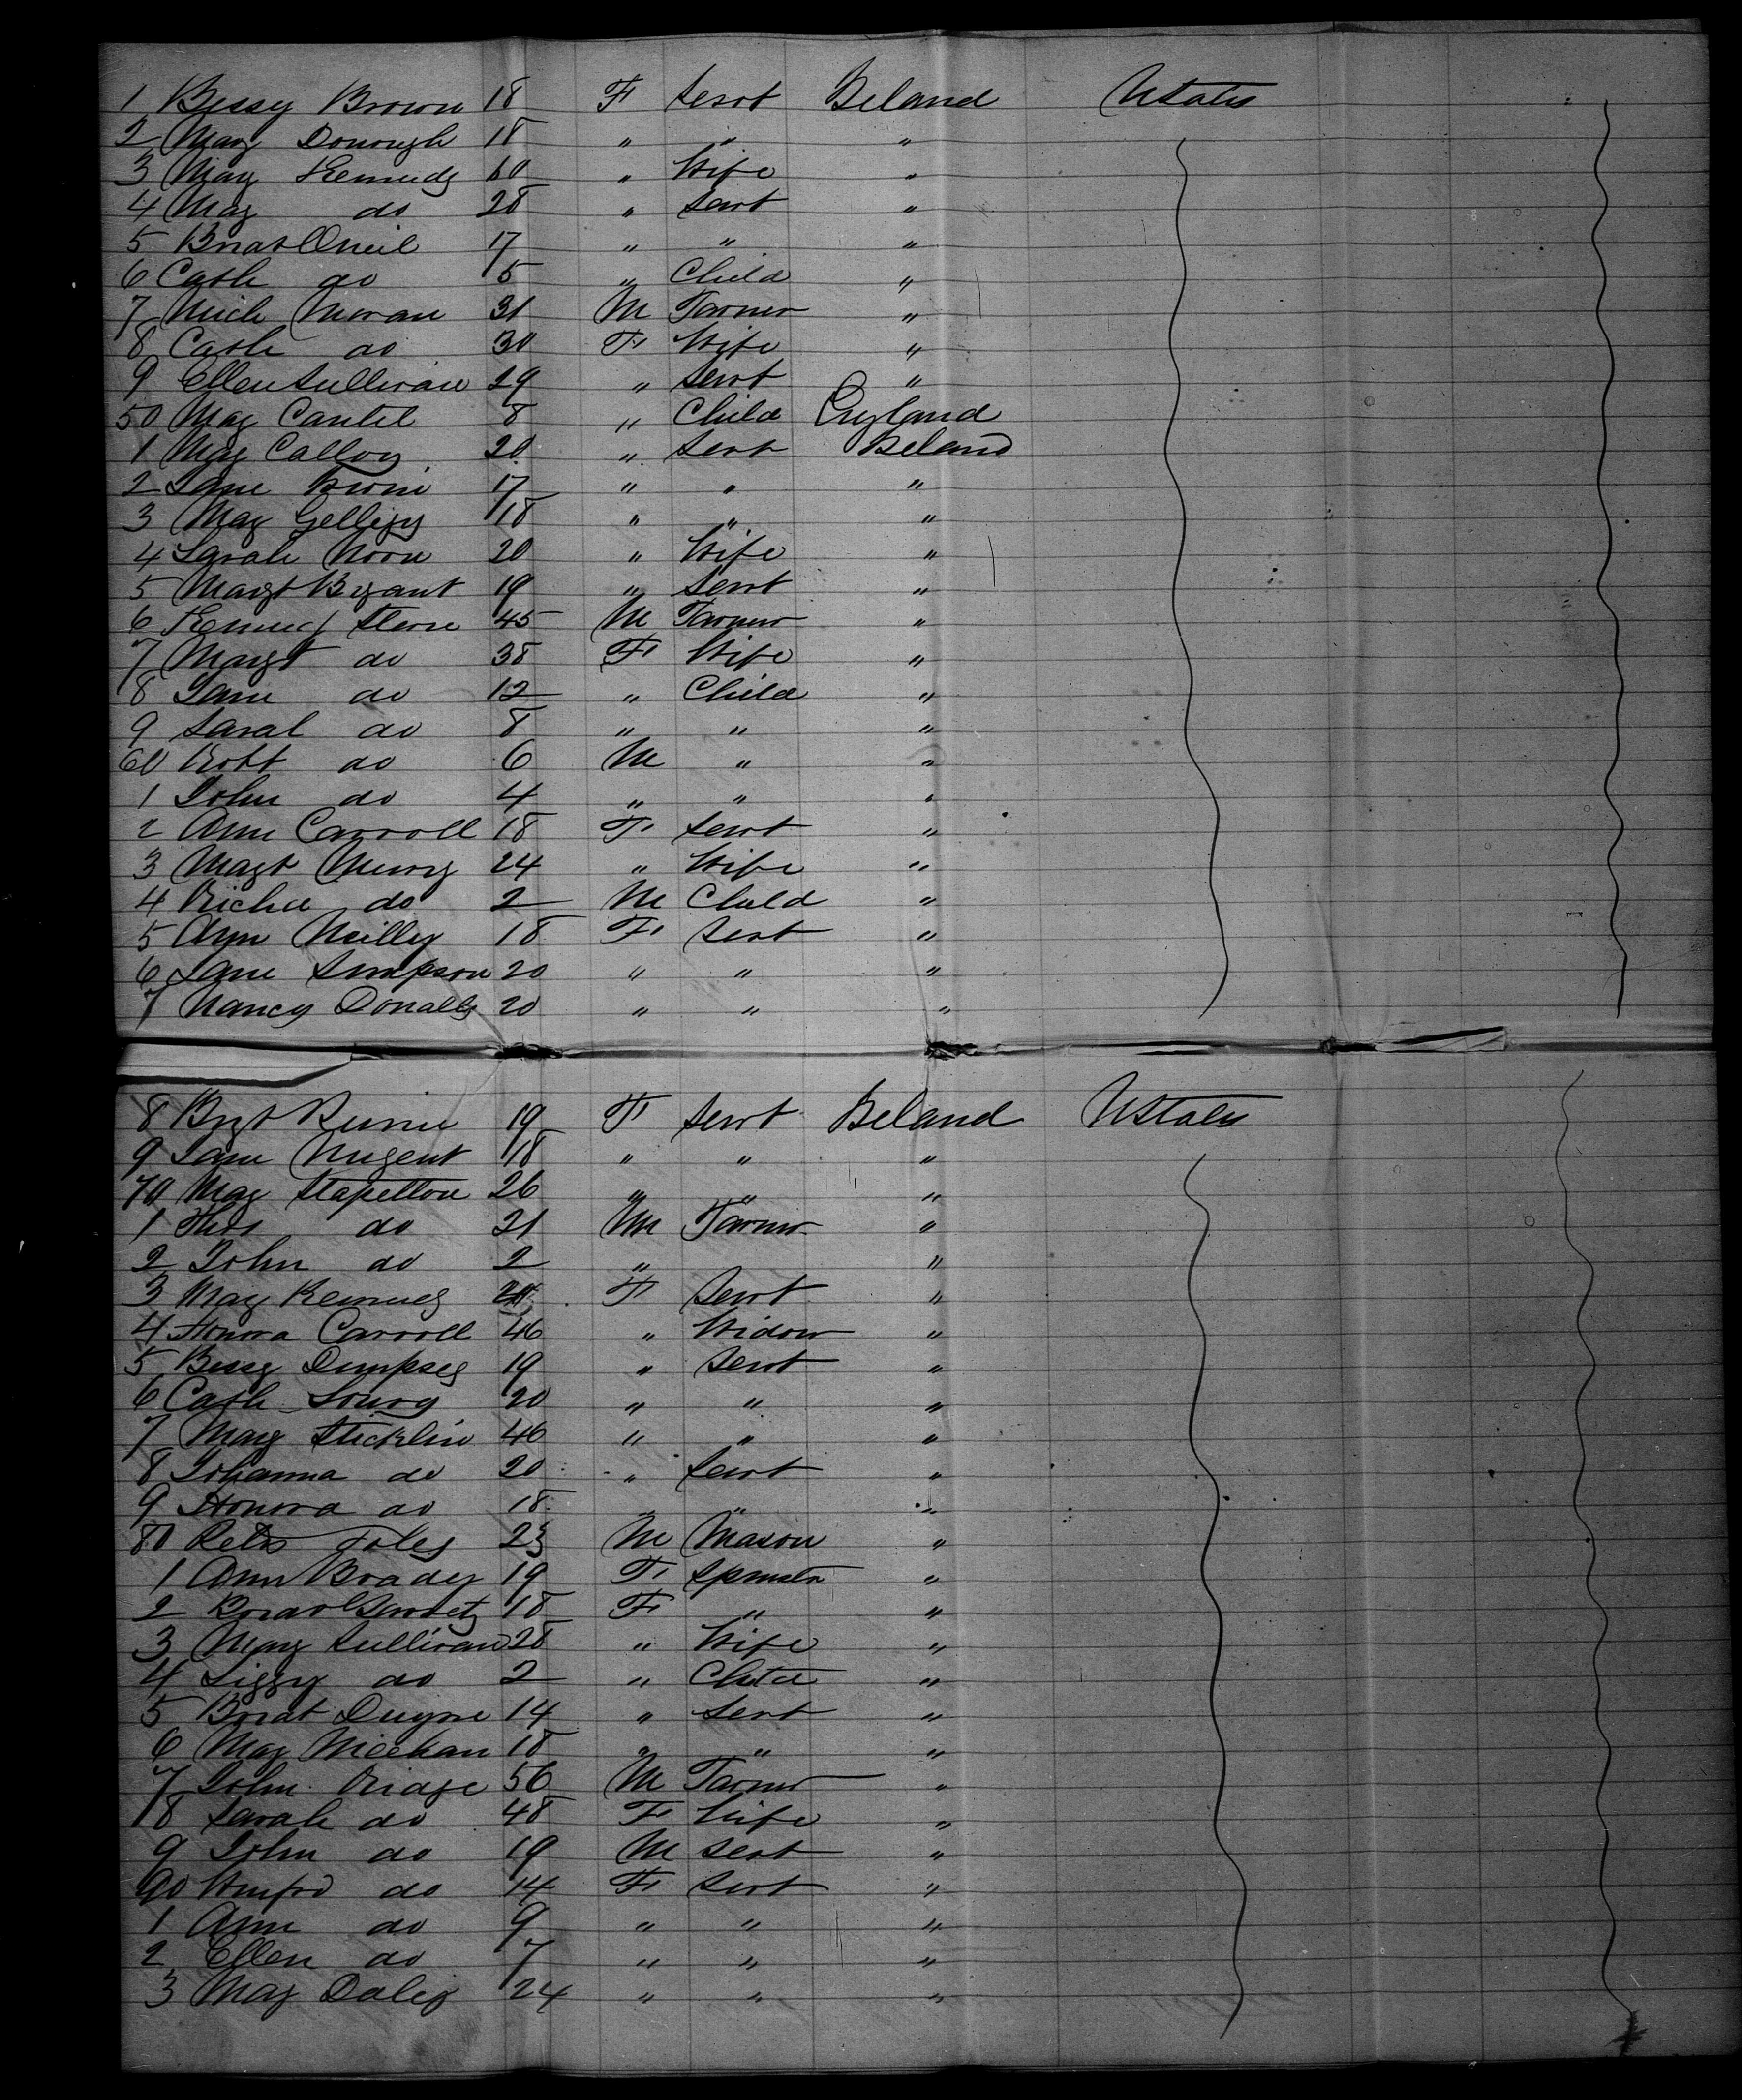 1 Bessy Brown 18 F Servt Ireland UStates
2 Mary Donough 18 " " "
3 Mary Kennedy 60 " Wife "
4 Mary do 28 " Servt "
5 Bridt ONeil 17 " " "
6 Cath do 5 " Child "
7 Mich Moran 31 M Farmer "
8 Cath do 30 F Wife "
9 Ellen Sullivan 29 " Servt "
50 Mary Cantil 8 " Child England
1 Mary Calloy 20 " Servt Ireland
2 Jane 17 " " "
3 Mary 18 " " "
4 Sarah Noon 20 " Wife "
5 Margt Bryant 19 " Servt "
6 45 M Farmer "
7 Margt do 38 F Wife "
8 Jane do 12 " Child "
9 Sarah do 8 " " "
60 Robt do 6 M " "
1 John do 4 " " "
2 Ann Carroll 18 F Servt "
3 Margt 24 " Wife "
4 Richd do 2 M Child "
5 Ann Reilly 18 F Servt "
6 Jane Simpson 20 " " "
7 Nancy Donally 20 " " "
8 Brgt 19 F Servt Ireland UStates
9 Jane Nugent 18 " " "
70 Mary Stapelton 26 " " "
1 Thos do 21 M Farmer "
2 John do 2 " "
3 Mary F Servt "
4 Honora Carroll 46 " Widow "
5 Bessy Dempsey 19 " Servt "
6 Cath 20 " " "
7 Mary Sticklin 46 " " "
8 Johanna do 20 " Servt "
9 Honora do 18 " " "
80 Peter Foley 23 M Mason "
1 Ann Brady 19 F Spinster "
2 Bridt 18 F " "
3 Mary Sullivan 28 " Wife "
4 Lizzy do 2 " Child "
5 Bridt 14 " Servt "
6 Mary Meehan 18 " " "
7 John Ridge 56 M Farmer "
8 Sarah do 48 F Wife "
9 John do 19 M Servt "
90 do 14 F Servt "
1 Ann do 9 " " "
2 Ellen do 7 " " "
3 Mary Daley 24 " " "